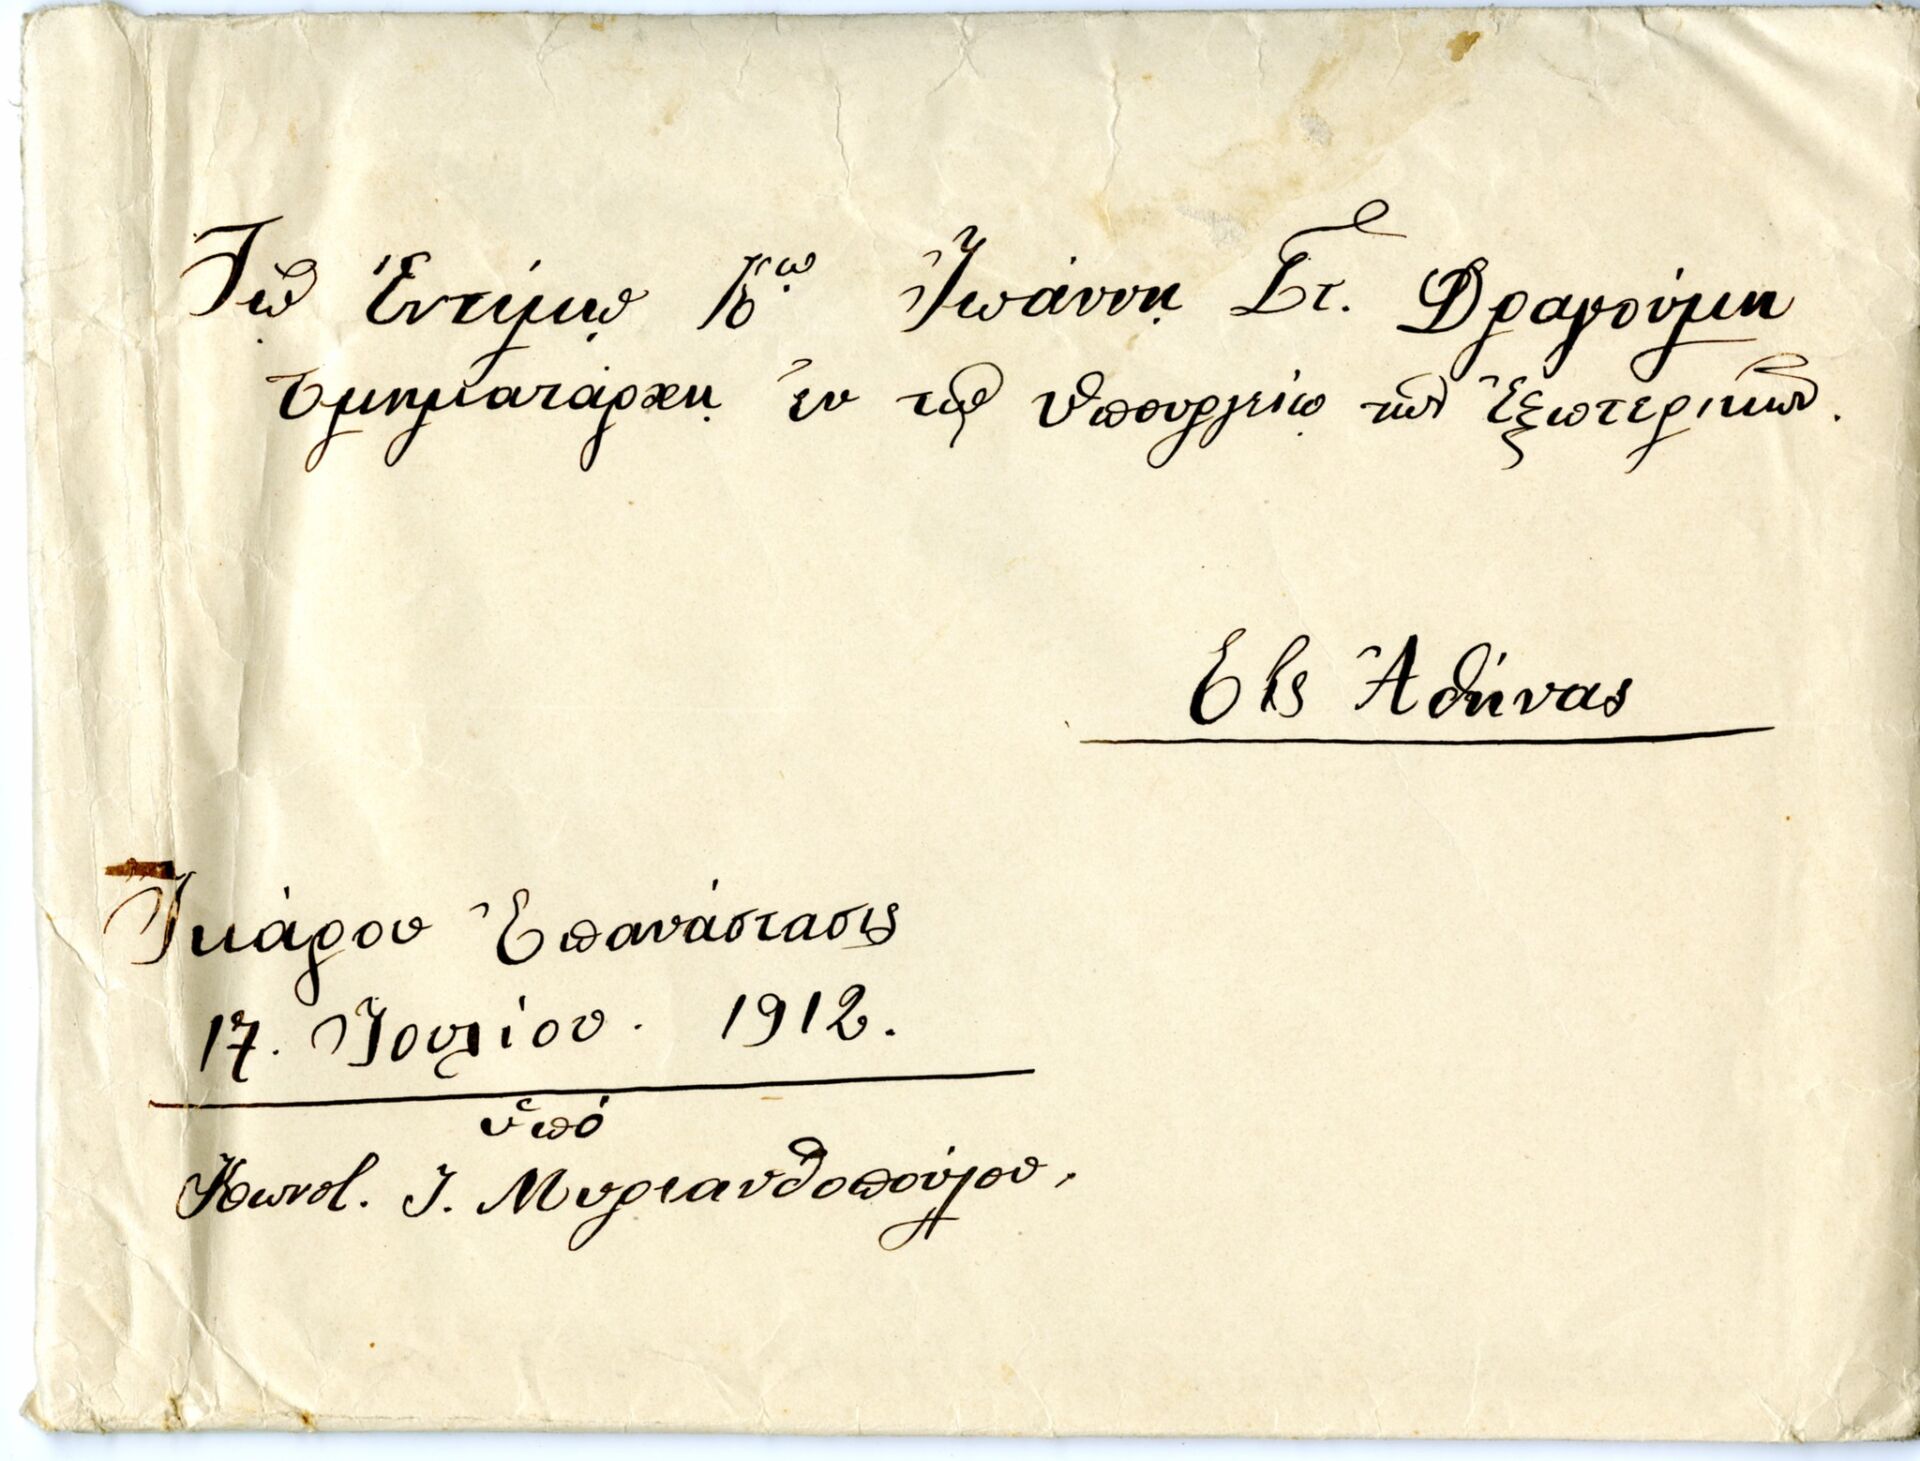 Τῷ Ἐντίμῳ Κῳ Ἰωάννῃ Στ. Δραγούμη
τμηματάρχῃ ἐν τῷ Ὑπουργείῳ τῶν Ἐξωτερικῶν.
Εἰς Ἀθήνας
Ἰκάρου Ἐπανάστασις
17. Ἰουλίου. 1912.
ὑπό
Κωνστ. Ι. Μυριανθοπούλου.